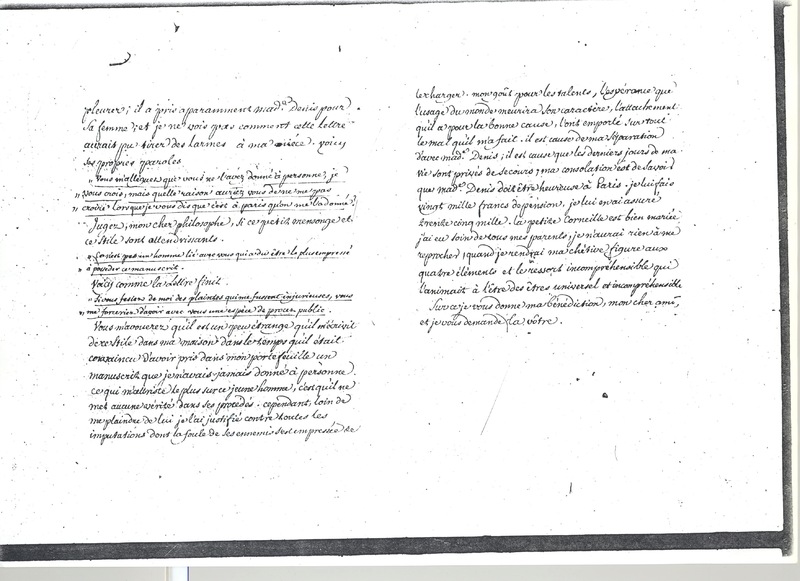 pleurer; il a pris aparamment mad.ᵉ Denis pour
sa femme; et je ne vois pas comment cette lettre
aurait pu tirer des larmes à ma niéce. voicy
ses propres paroles
" Vous m'alléguez que vous ne l'avez donné à personne, je
" vous crois; mais quelle raison auriez vous de ne me pas
" croire lorsque je vous dis que c'est à paris qu'on me l'a donné?
Jugez, mon cher philosophe, si ce petit mensonge et
ce stile sont attendrissants.
" Ce n'est pas un homme lié avec vous qui a du être le plus empressé
" à posséder ce manuscrit.
Voicy comme la Lettre finit
" Si vous fesiez de moi des plaintes qui me fussent injurieuses, vous
" me forceriez d'avoir avec vous une espèce de procez public.
Vous m'avouerez qu'il est un peu étrange qu'il m'écrivit
de ce stile dans ma maison dans le temps qu'il était
convaincu d'avoir pris dans mon portefeuille un
manuscrit que je n'avais jamais donné à personne.
ce qui m'attriste le plus sur ce jeune homme, c'est qu'il ne
met aucune vérité dans ses procédés. cependant, loin de
me plaindre de lui je l'ai justifié contre toutes les
imputations dont la foule de ses ennemis s'est empressée de
le charger. mon goût pour les talents, l'espérance que
l'usage du monde meurira son caractère, l'attachement
qu'il a pour la bonne cause, l'ont emporté sur tout
le mal qu'il m'a fait. il est cause de ma séparation
d'avec mad.ᵉ Denis; il est cause que les derniers jours de ma
vie sont privés de secours; ma consolation est de savoir
que mad.ᵉ Denis doit être heureuse à Paris. je lui fais
vingt mille francs de pension. je lui en ai assuré
trente cinq mille. la petite Corneille est bien mariée
j'ai eu soin de tous mes parents, je n'aurai rien à me
reprocher, quand je rendrai ma chétive figure aux
quatre éléments et le ressort incompréhensible qui
l'animait à l'être des êtres universel et incompréhensible
Sur ce je vous donne ma bénédiction, mon cher ami,
et je vous demande la vôtre.